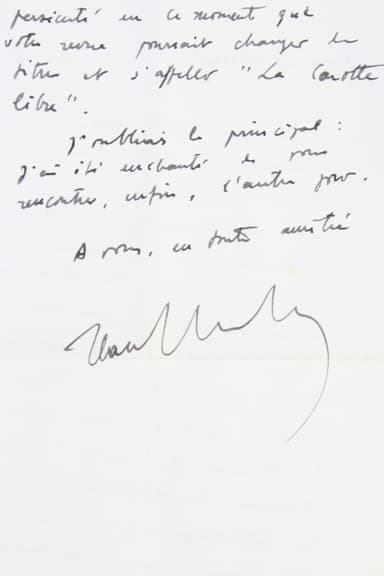 persécuté en ce moment que
votre revue pourrait changer de
titre et s'appeler "La Carotte
libre".
J'oubliais le principal :
j'ai été enchanté de vous
rencontrer, enfin, l'autre jour.
A vous, en toute amitié